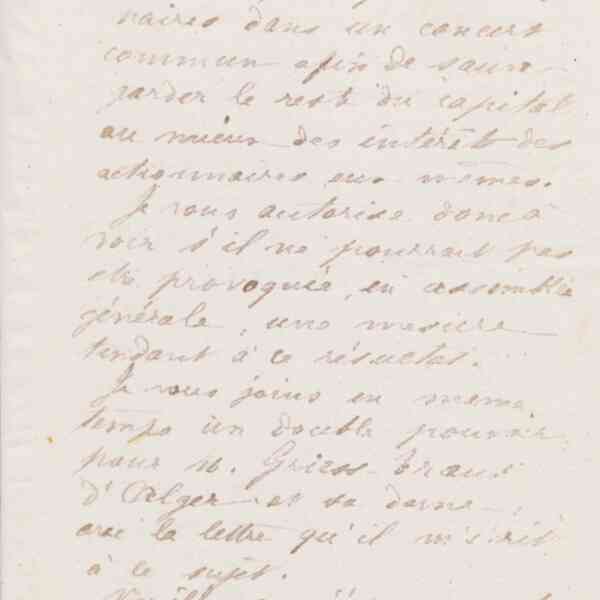 naires dans un concert
commun afin de sauve-
garder le reste du capital
au mieux des intérêt des
actionnaires eux mêmes.
Je vous autorise donc à
voir s'il ne pourrait pas
être provoquée, en assemblée
générale, une mesure
tendant à ce résultat.
Je vous joins en meme
temps un double pouvoir
pour M. Griess-Traut
d'Alger et sa dame,
avec la lettre qu'il m'écrit
à ce sujet.